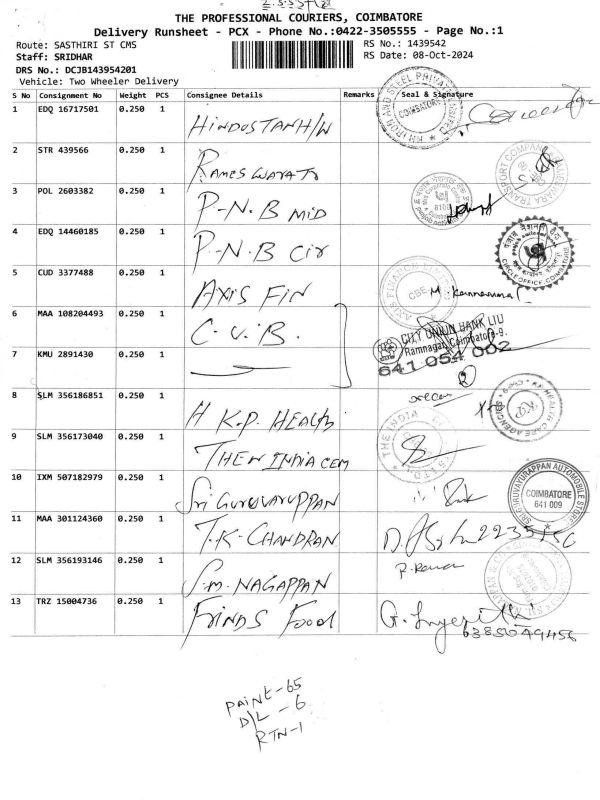 THE PROFESSIONAL COURIERS, COIMBATORE
Delivery Runsheet - PCX - Phone No.:0422-3505555 - Page No.:1
Route: SASTHIRI ST CMS RS No.: 1439542
Staff: SRIDHAR RS Date: 08-Oct-2024
DRS No.: DCJB143954201
Vehicle: Two Wheeler Delivery
S No Consignment No Weight PCS Consignee Details Remarks Seal & Signature
1 EDQ 16717501 0.250 1 HINDUSTAN H/W
COIMBATORE
2 STR 439566 0.250 1 RAMESWARA TR
3 POL 2603382 0.250 1 P-N.B MID
4 EDQ 14460185 0.250 1 P-N.B Cir
CIRCLE OFFICE, COIMBATORE
5 CUD 3377488 0.250 1 AXIS FIN
AXIS FINANCE
CBE
6 MAA 108204493 0.250 1 C.U.B.
CITY UNION BANK LTD
Ramnagar, Coimbatore-9.
7 KMU 2891430 0.250 1
641 054 002
8 SLM 356186851 0.250 1 H K.P. HEALTH
9 SLM 356173040 0.250 1 THE INDIA CEM
THE INDIA
10 IXM 507182979 0.250 1 Sri GURUVAYUPPAN
SRI GURUVAYURAPPAN AUTOMOBILE STORE
COIMBATORE
641 009
11 MAA 301124360 0.250 1 T.K-CHANDRAN
12 SLM 356193146 0.250 1 S.M. NAGAPPAN
13 TRZ 15004736 0.250 1 FRINDS FOOD
6385049456
PAINT-65
D/L-6
RTN-1